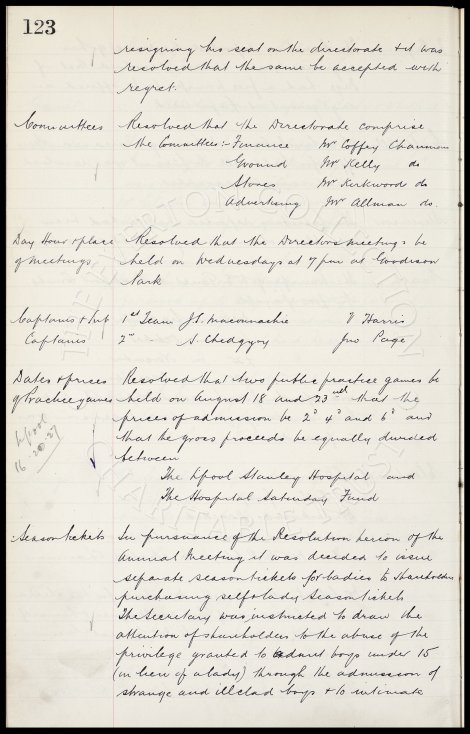 123
resigning his seat on the directorate & it was
resolved that the same be accepted with
regret.
Committees Resolved that the Directorate comprise
the Committees:- Finance Mr Coffey Chairman
Ground Mr Kelly do
Stores Mr Kirkwood do
Advertising Mr Allman do.
Day Hour & place Resolved that the Directors meetings be
of meetings held on Wednesdays at 7 pm at Goodison
Park
Captains & Sub 1st Team J.S. Maconnachie V Harris
Captains 2nd S. Chedgzoy Jno Page
Dates & prices Resolved that two public practice games be
of Practice games held on August 18 and 23rd that the
prices of admission be 2d 4d and 6d and
that the gross proceeds be equally divided
between
Lpool
16 - 20 - 27
The Lpool Stanley Hospital and
The Hospital Saturday Fund
Season tickets In pursuance of the Resolution hereon of the
Annual Meeting it was decided to issue
separate season tickets for Ladies to Shareholders
purchasing self & lady season tickets
The Secretary was instructed to draw the
attention of shareholders to the abuse of the
privilege granted to admit boys under 15
(in lieu of a lady) through the admission of
strange and illclad boys & to intimate